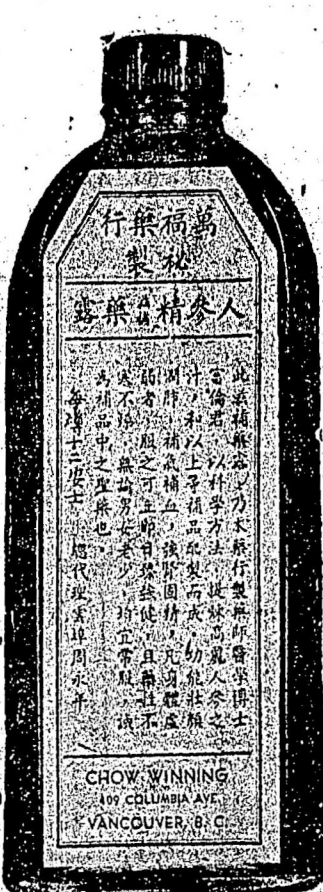 萬福藥行
秘製
人參精藥露
此補藥露，乃本藥行製藥師醫學博士
倫君，以科學方法，提鍊高麗人參之
汁，和以上等補品配製而成，功能壯顏
潤肺，補氣補血，強腎固精，凡身體虛
弱者，服之可立即日臻強健，且藥性不
寒不燥，無論男女老少，均宜常服，誠
為補品中之聖藥也。
每樽十二安士 總代理雲埠周永年
CHOW WINNING
409 COLUMBIA AVE
VANCOUVER, B. C.